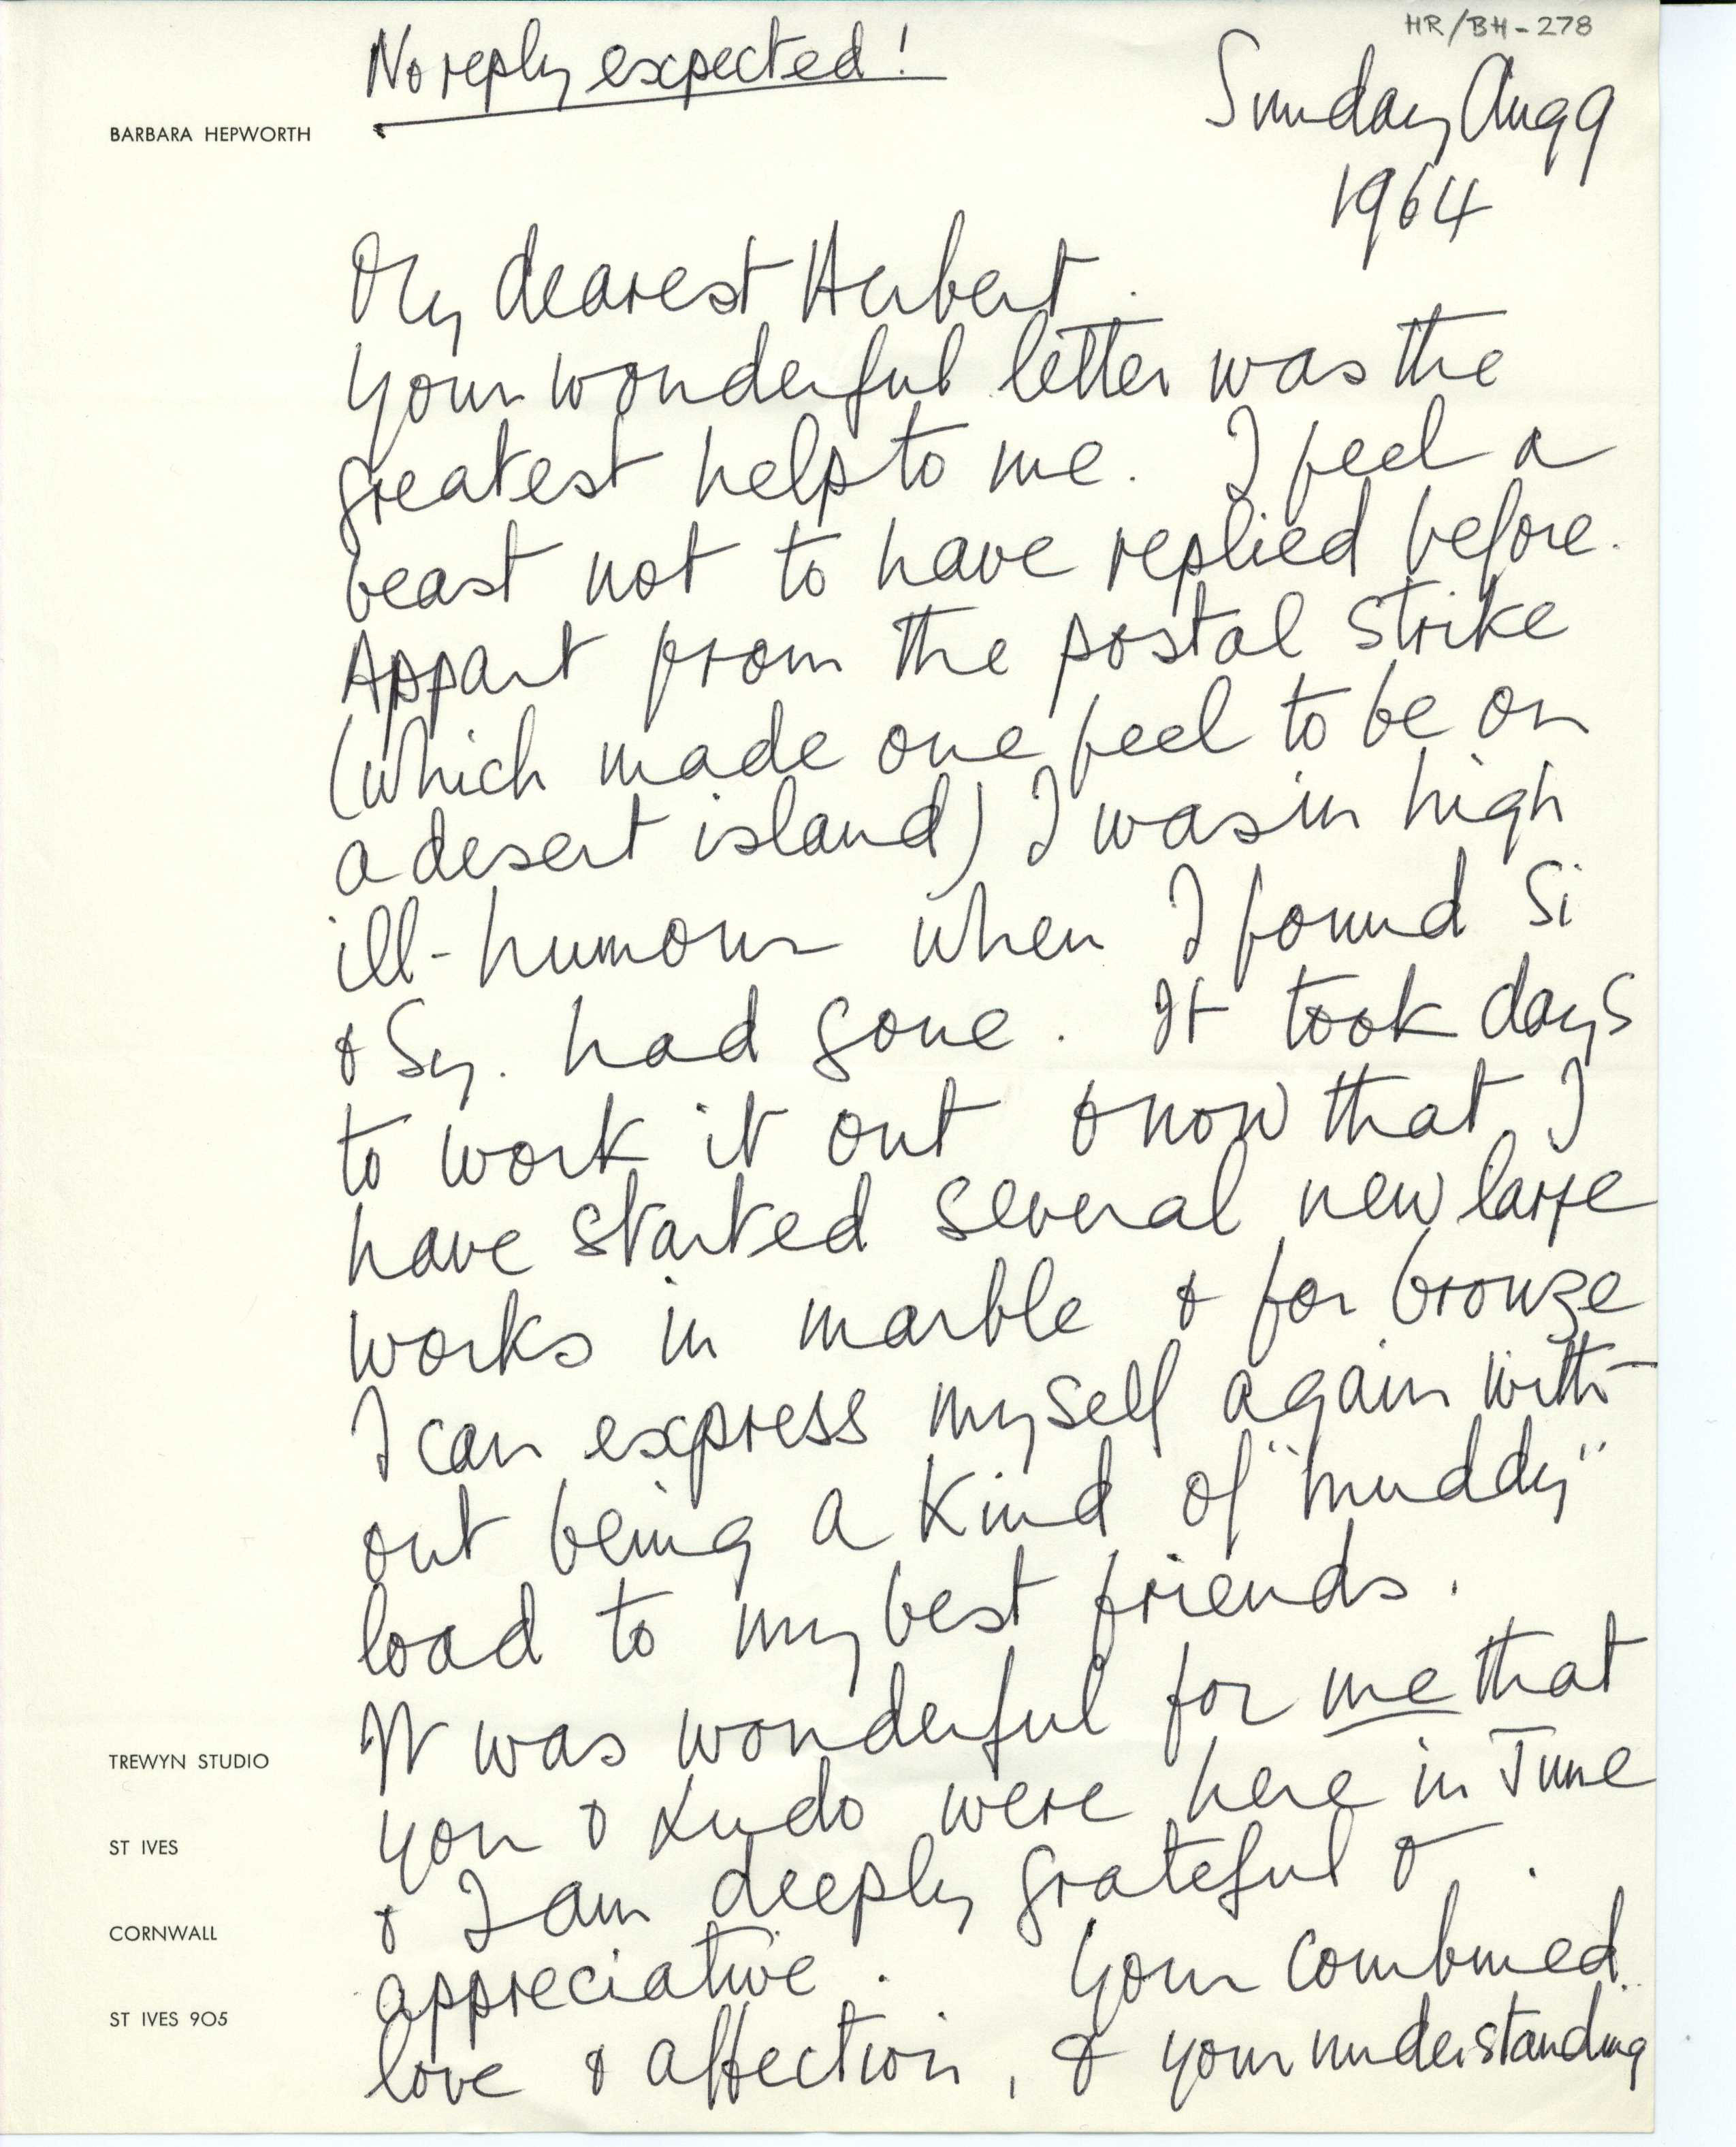 HR/BH-278
No reply expected!
BARBARA HEPWORTH
Sunday Aug 9
1964
My dearest Herbert.
Your wonderful letter was the
greatest help to me. I feel a
beast not to have replied before.
Appart from the postal strike
(which made one feel to be on
a desert island) I was in high
ill-humour when I found Si
& Sy. had gone. It took days
to work it out & now that I
have started several new large
works in marble & for bronze
I can express myself again with-
out being a kind of "muddy"
load to my best friends.
It was wonderful for me that
you & Ludo were here in June
& I am deeply grateful &
appreciative. Your combined
love & affection, & your understanding
TREWYN STUDIO
ST IVES
CORNWALL
ST IVES 905